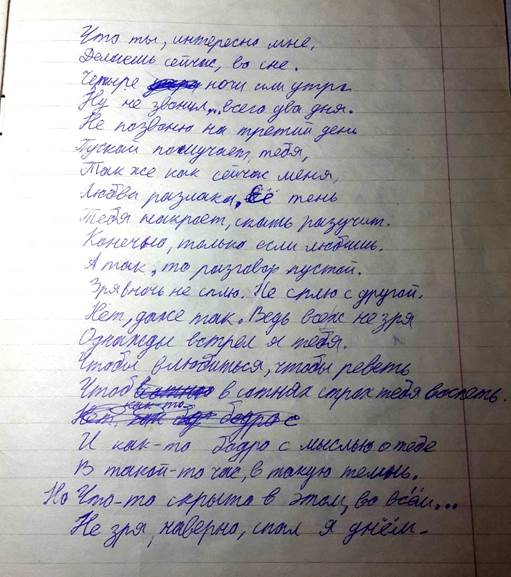 Что ты, интересно мне,
Делаешь сейчас, во сне.
Четыре ночи или утра
Ну не звонил... всего два дня.
Не позвоню на третий день
Пускай помучает тебя,
Так же как сейчас меня,
Любви разлака, её тень
Тебя накроет, спать разучит.
Конечно, только если любишь.
А так, то разговор пустой.
Зря ночь не сплю. Не сплю с другой.
Нет, даже так. Ведь всех не зря
Однажды встрел я тебя.
Чтобы влюбиться, чтобы реветь
Чтоб в сотнях строх тебя воспеть.
как-то
И как-то бодро с мыслью о тебе
В такой-то час, в такую темнь.
Но Что-то скрыто в этом, во всём...
Не зря, наверно, спал я днём.